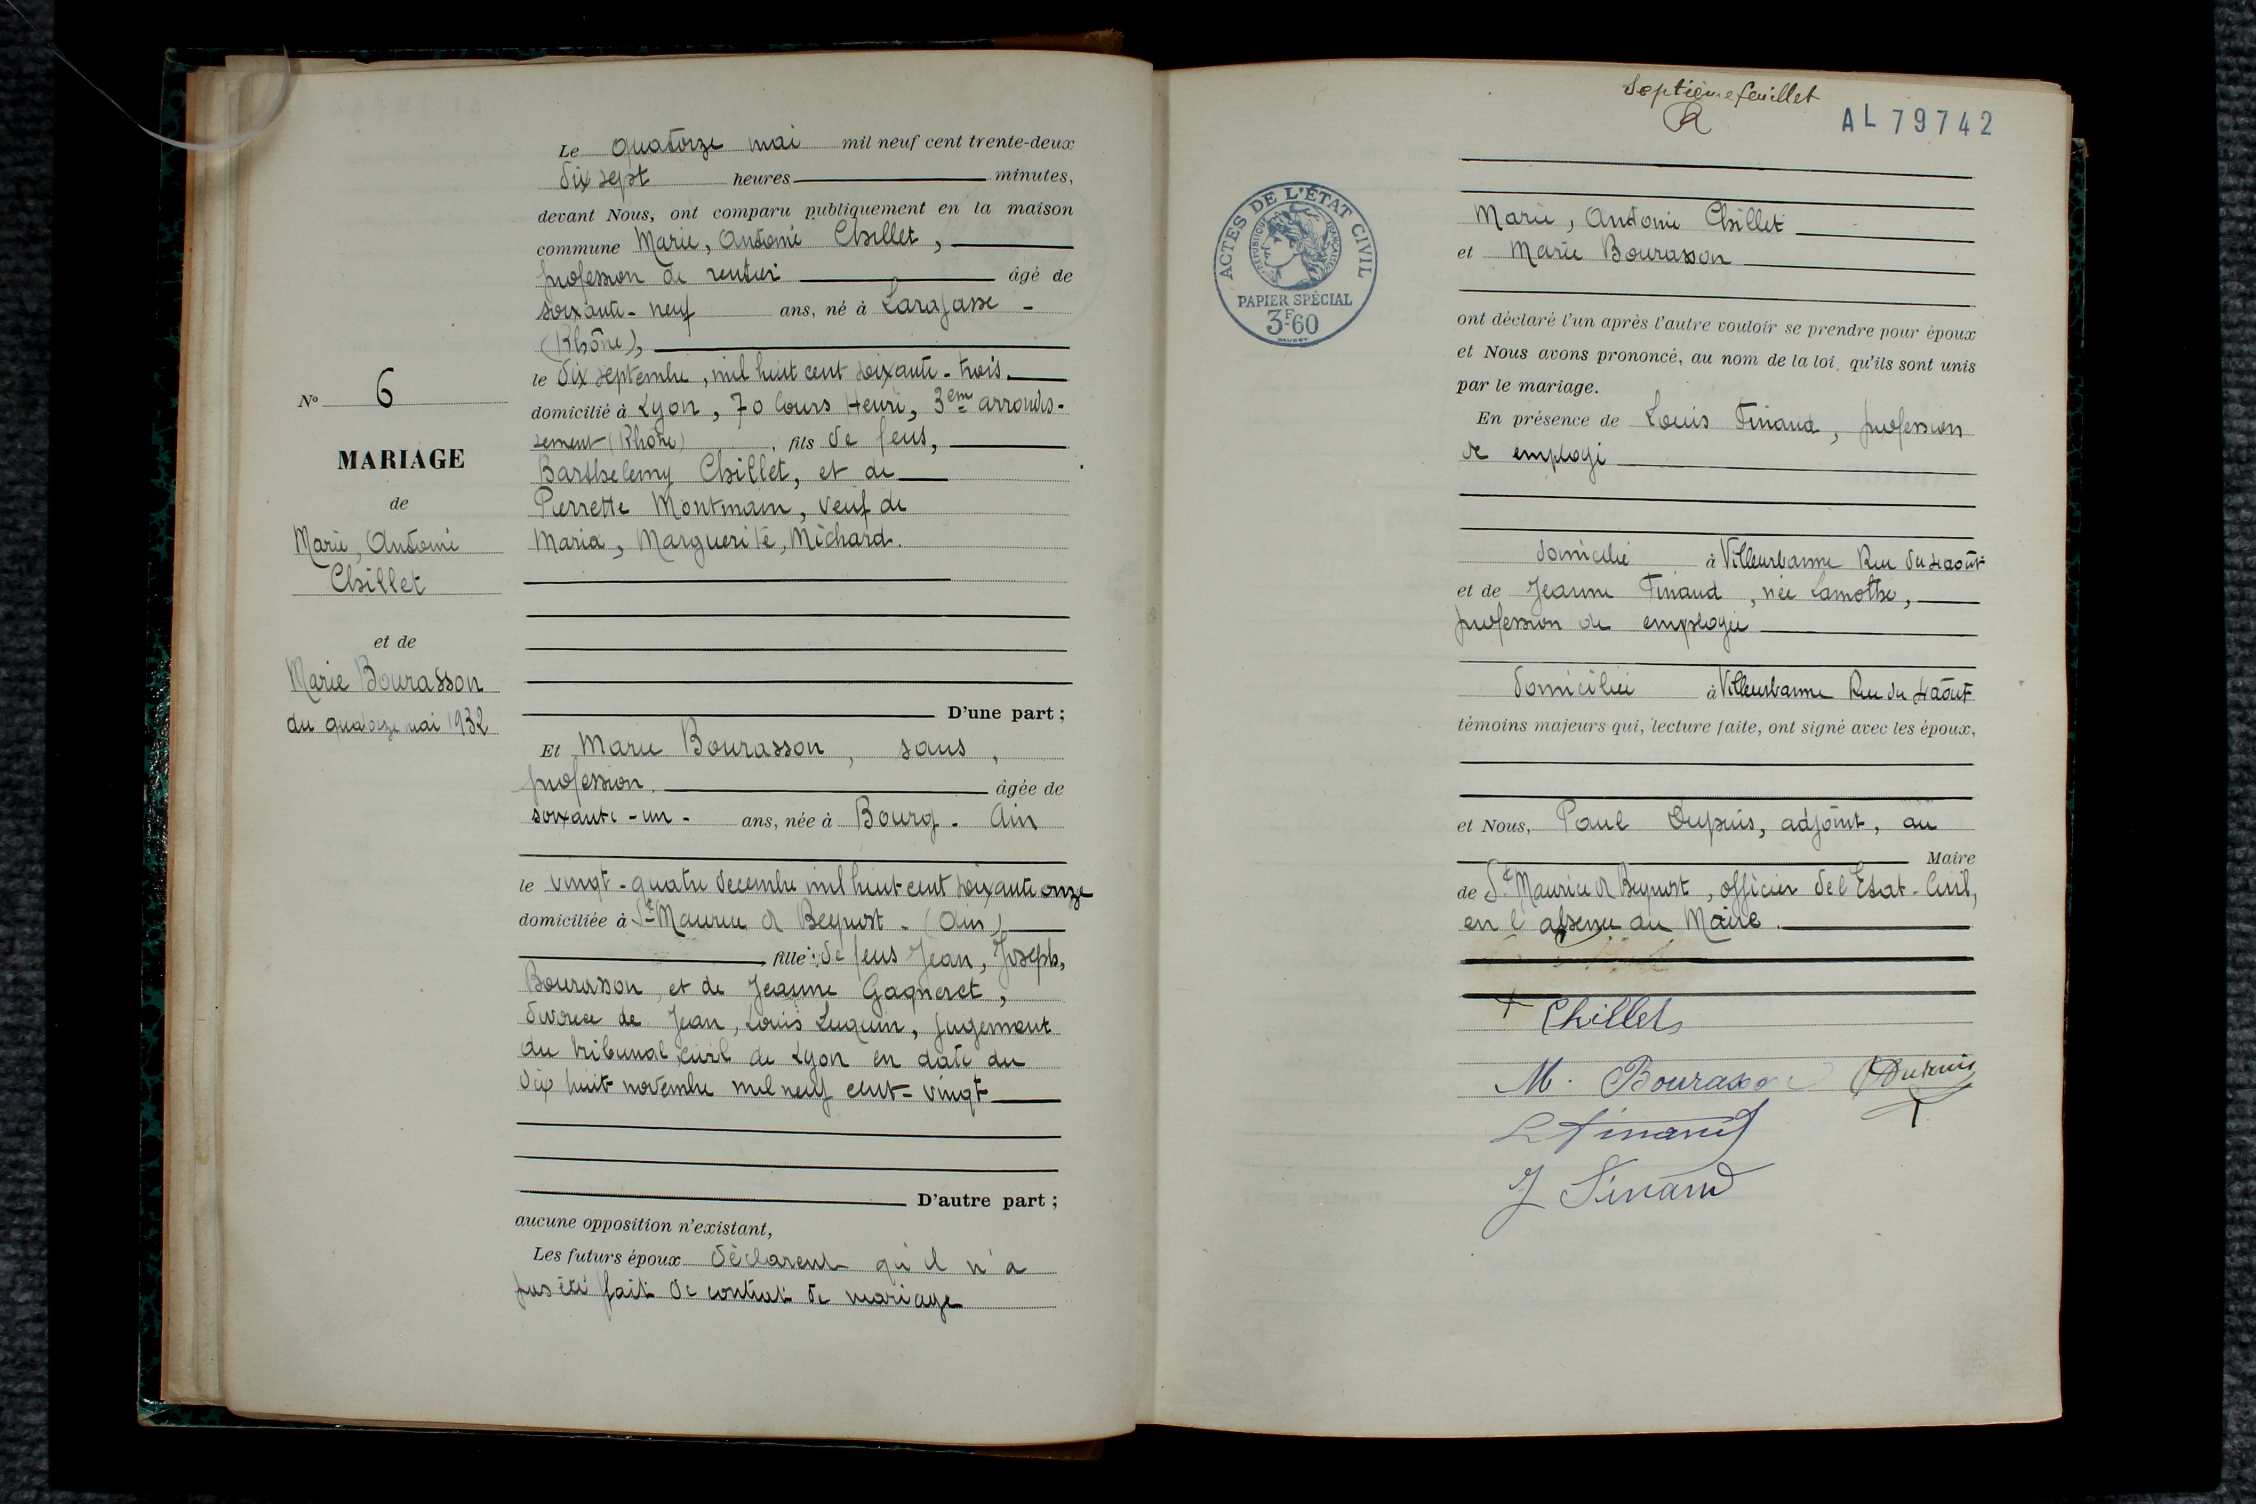 N° 6
MARIAGE
de
Marie, Antonie
Chillet
et de
Marie Bourasson
du quatorze mai 1932
Le quatorze mai mil neuf cent trente-deux
dix sept heures minutes,
devant Nous, ont comparu publiquement en la maison
commune Marie, Antonie Chillet,
profession de rentier âgé de
soixante-neuf ans, né à Larajasse -
(Rhône),
le dix septembre, mil huit cent soixante-trois.
domicilié à Lyon, 70 Cours Henri, 3em arrondis-
sement (Rhône), fils de feus,
Barthelemy Chillet, et de
Pierrette Montmain, veuf de
Maria, Marguerite, Michard.
D'une part ;
Et Marie Bourasson, sans,
profession. âgée de
soixante-un- ans, née à Bourg - Ain
le vingt-quatre decembre mil huit cent soixante onze
domiciliée à St Maurice d Beynost - (Ain)
fille : de feus Jean, Joseph,
Bourasson, et de Jeanne Gagneret,
divorcee de Jean, Louis Luquin, jugement
du tribunal civil de Lyon en date du
dix huit novembre mil neuf cent-vingt
D'autre part ;
aucune opposition n'existant,
Les futurs époux déclarent qu'il n'a
pas été fait de contrat de mariage
Septième feuillet
AL 79742
ACTES DE L'ÉTAT CIVIL
RÉPUBLIQUE FRANÇAISE
PAPIER SPÉCIAL
3F60
Marie, Antonie Chillet
et Marie Bourasson
ont déclaré l'un après l'autre vouloir se prendre pour époux
et Nous avons prononcé, au nom de la loi, qu'ils sont unis
par le mariage.
En présence de Louis Finaud, profession
de employé
domicilié à Villeurbanne Rue du 4 août
et de Jeanne Finaud, née Lamothe,
profession de employée
domiciliée à Villeurbanne Rue du 4 août
témoins majeurs qui, lecture faite, ont signé avec les époux,
et Nous, Paul Dupuis, adjoint, au
Maire
de St Maurice d Beynost, officier de l'Etat-Civil,
en l'absence du Maire.
Chillet
M. Bourasson Dupuis
L Finaud
J Finaud